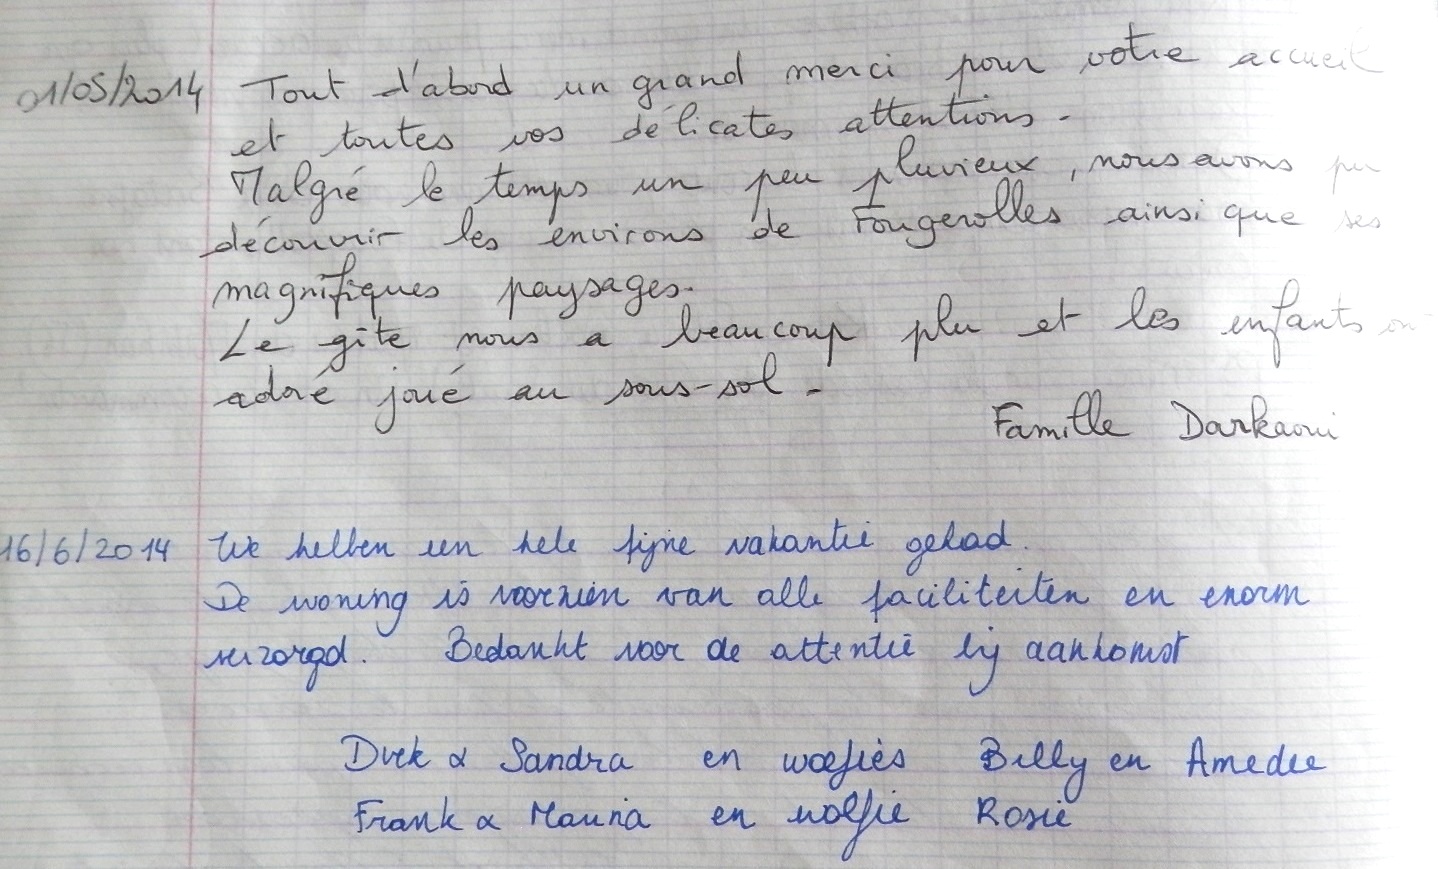 01/05/2014 Tout d'abord un grand merci pour votre accueil
et toutes vos délicates attentions.
Malgré le temps un peu pluvieux, nous avons pu
découvrir les environs de Fougerolles ainsi que ses
magnifiques paysages.
Le gîte nous a beaucoup plu et les enfants on
adoré joué au sous-sol.
Famille Darkaoui
16/6/2014 We hebben een hele fijne vakantie gehad.
De woning is voorzien van alle faciliteiten en enorm
verzorgd. Bedankt voor de attentie bij aankomst
Dirk & Sandra en woefies Billy en Amedee
Frank & Marina en wolfie Rosie